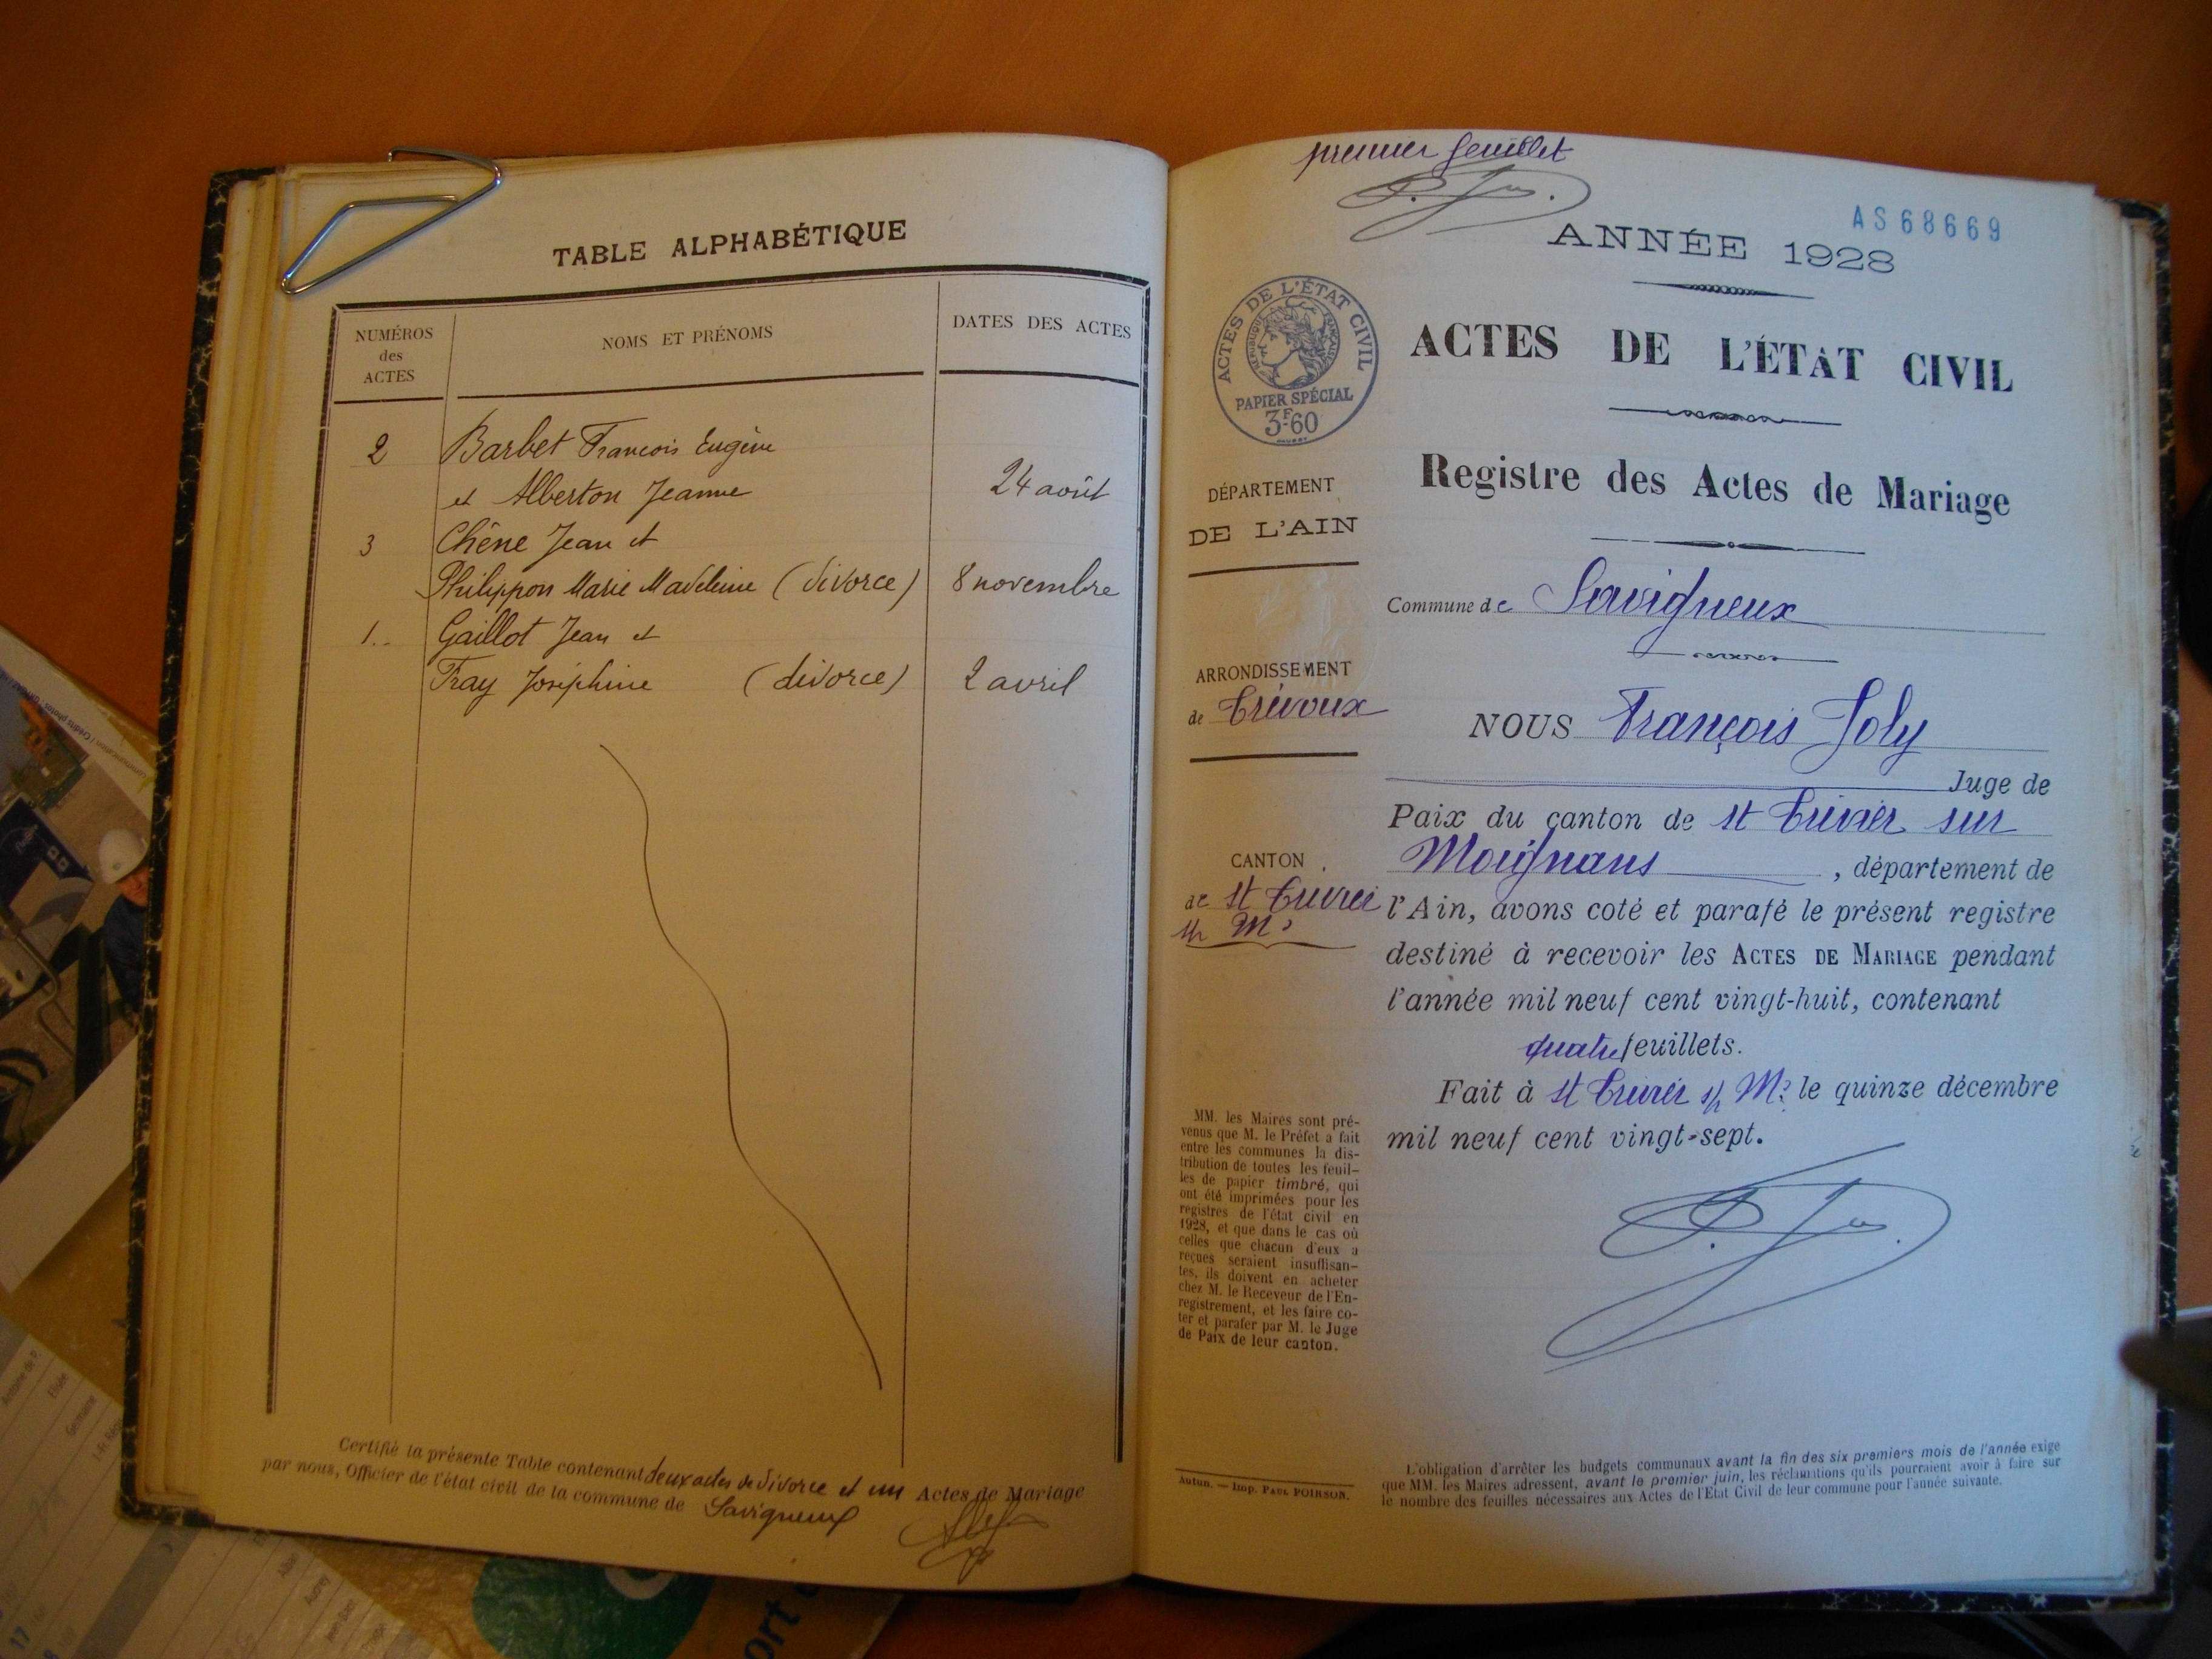 TABLE ALPHABÉTIQUE
NUMÉROS
des
ACTES
NOMS ET PRÉNOMS
DATES DES ACTES
2 Barbet François Eugène
et Alberton Jeanne 24 août
3 Chêne Jean et
Philippon Marie Madeleine (divorce) 8 novembre
1.. Gaillot Jean et
Tray Joséphine (divorce) 2 avril
Certifié la présente Table contenant deux actes de divorce et un Actes de Mariage
par nous, Officier de l'état civil de la commune de Savigneux
premier feuillet
AS 68669
ANNÉE 1928
ACTES DE L'ÉTAT CIVIL
RÉPUBLIQUE FRANÇAISE
PAPIER SPÉCIAL
3F60
ACTES DE L'ÉTAT CIVIL
Registre des Actes de Mariage
DÉPARTEMENT
DE L'AIN
Commune de Savigneux
ARRONDISSEMENT
de Trévoux
CANTON
de St Trivier
s/ M.
NOUS François Joly
Juge de
Paix du canton de St Trivier sur
Moignans, département de
l'Ain, avons coté et parafé le présent registre
destiné à recevoir les ACTES DE MARIAGE pendant
l'année mil neuf cent vingt-huit, contenant
quatre feuillets.
Fait à St Trivier s/ M. le quinze décembre
mil neuf cent vingt-sept.
MM. les Maires sont pré-
venus que M. le Préfet a fait
entre les communes la dis-
tribution de toutes les feuil-
les de papier timbré, qui
ont été imprimées pour les
registres de l'état civil en
1928, et que dans le cas où
celles que chacun d'eux a
reçues seraient insuffisan-
tes, ils doivent en acheter
chez M. le Receveur de l'En-
registrement, et les faire co-
ter et parafer par M. le Juge
de Paix de leur canton.
Autun. — Imp. PAUL POINSON.
L'obligation d'arrêter les budgets communaux avant la fin des six premiers mois de l'année exige
que MM. les Maires adressent, avant le premier juin, les réclamations qu'ils pourraient avoir à faire sur
le nombre des feuilles nécessaires aux Actes de l'État Civil de leur commune pour l'année suivante.